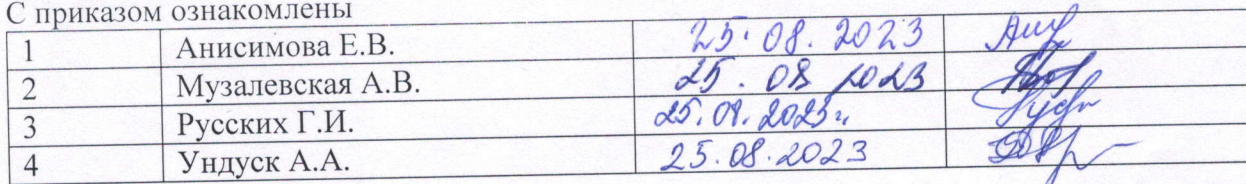 С приказом ознакомлены
1 Анисимова Е.В. 25.08.2023
2 Музалевская А.В. 25.08 2023
3 Русских Г.И. 25.08.2023г.
4 Ундуск А.А. 25.08.2023